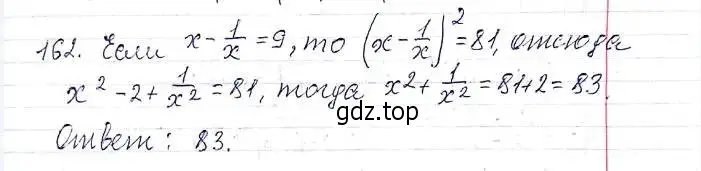 162. Если x - 1/x = 9, то (x - 1/x)² = 81, отсюда
x² - 2 + 1/x² = 81, тогда x² + 1/x² = 81+2 = 83.
gdz.top
Ответ: 83.